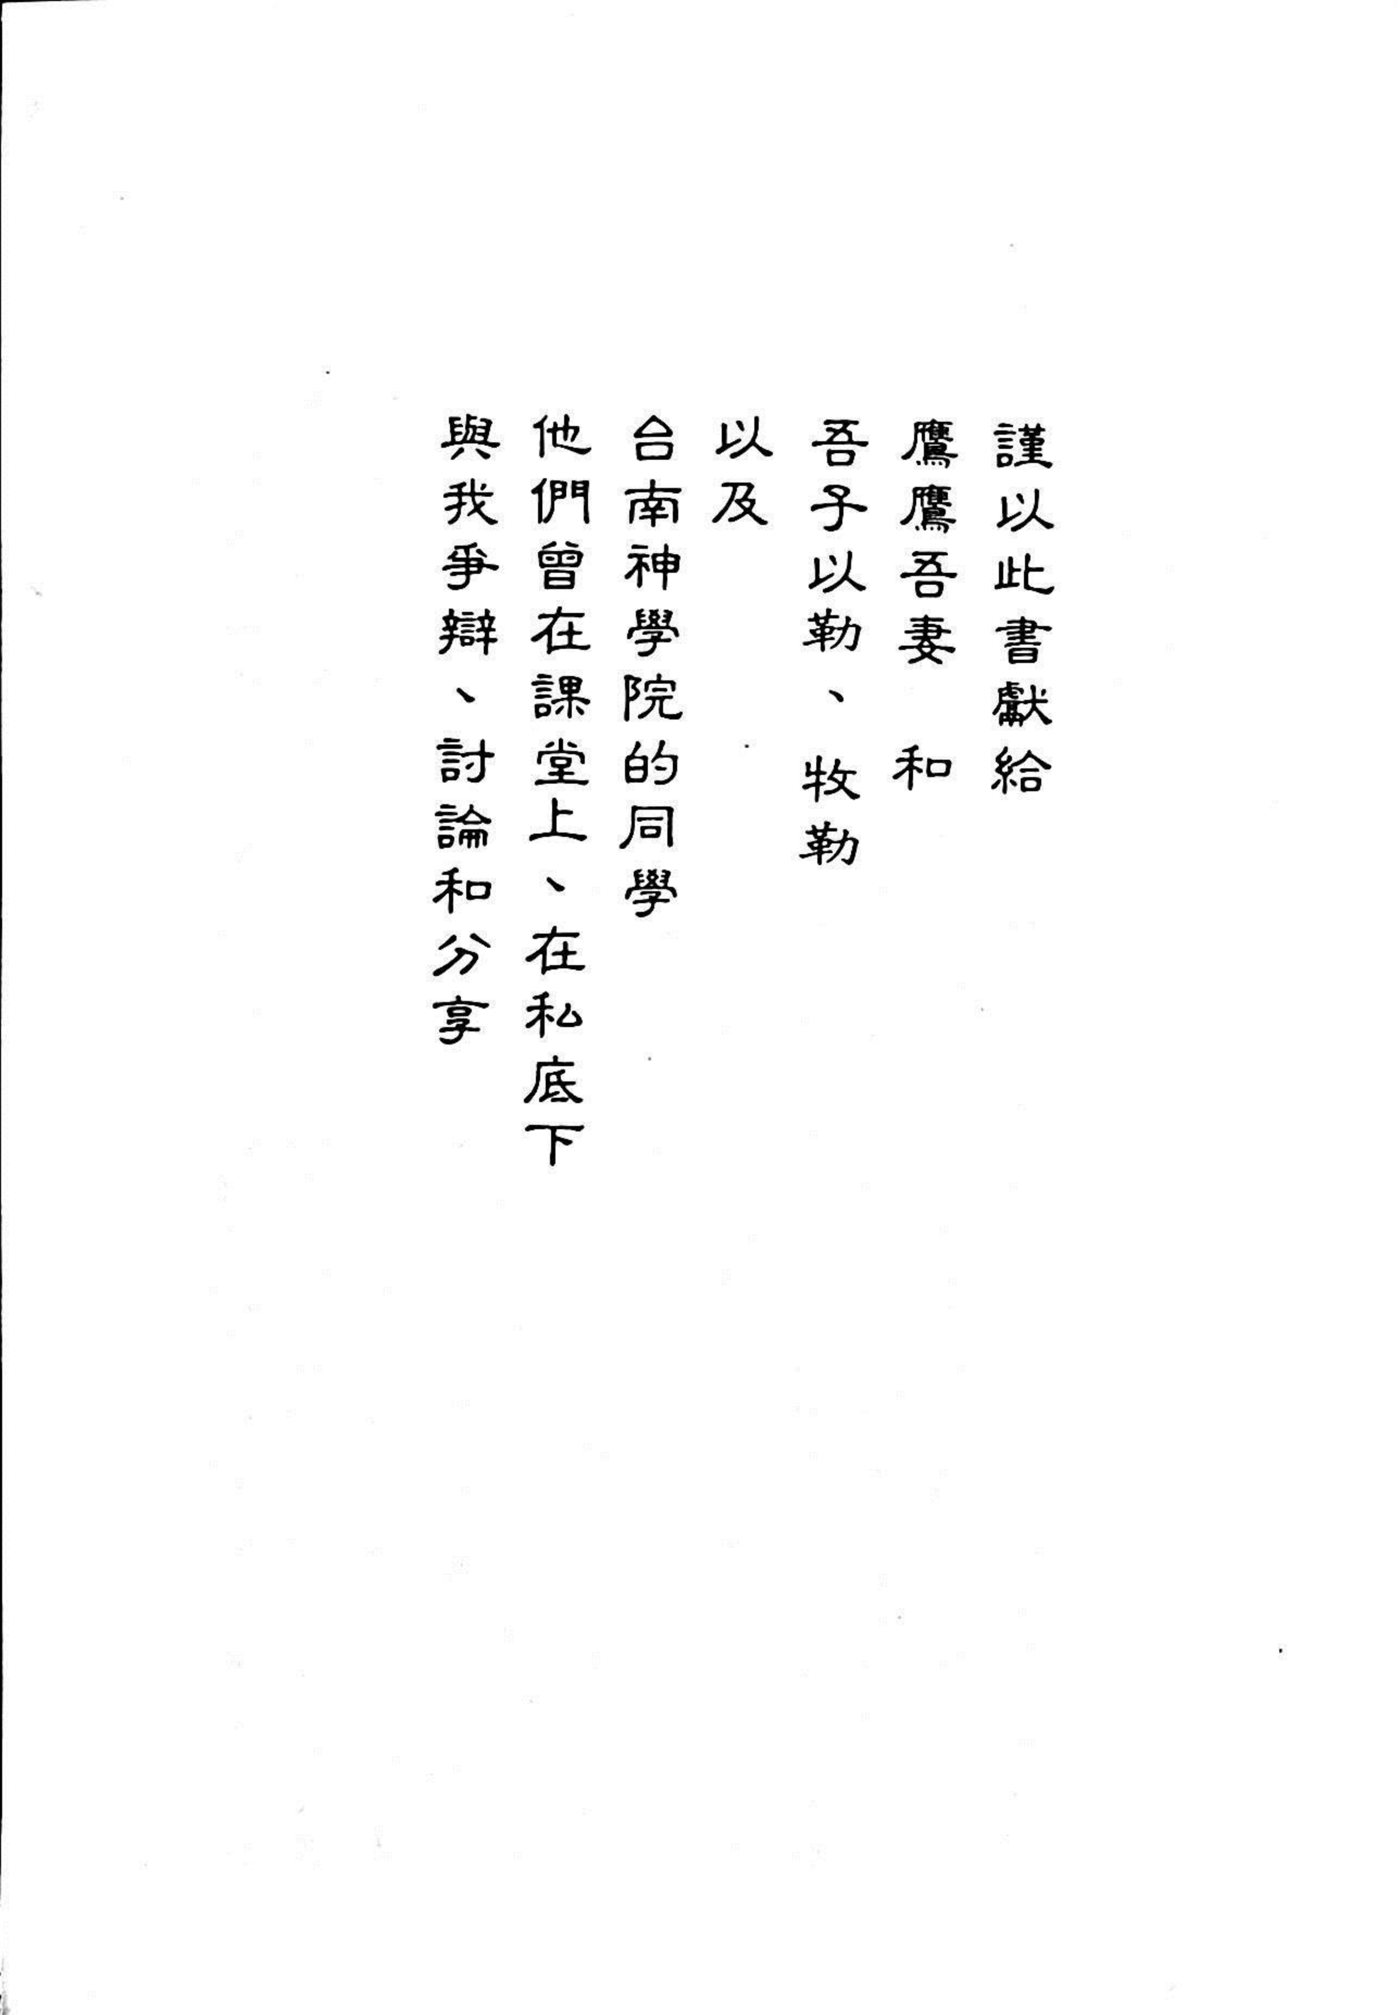 謹以此書獻給
鷹鷹吾妻 和
吾子以勒、牧勒
以及
台南神學院的同學
他們曾在課堂上、在私底下
與我爭辯、討論和分享